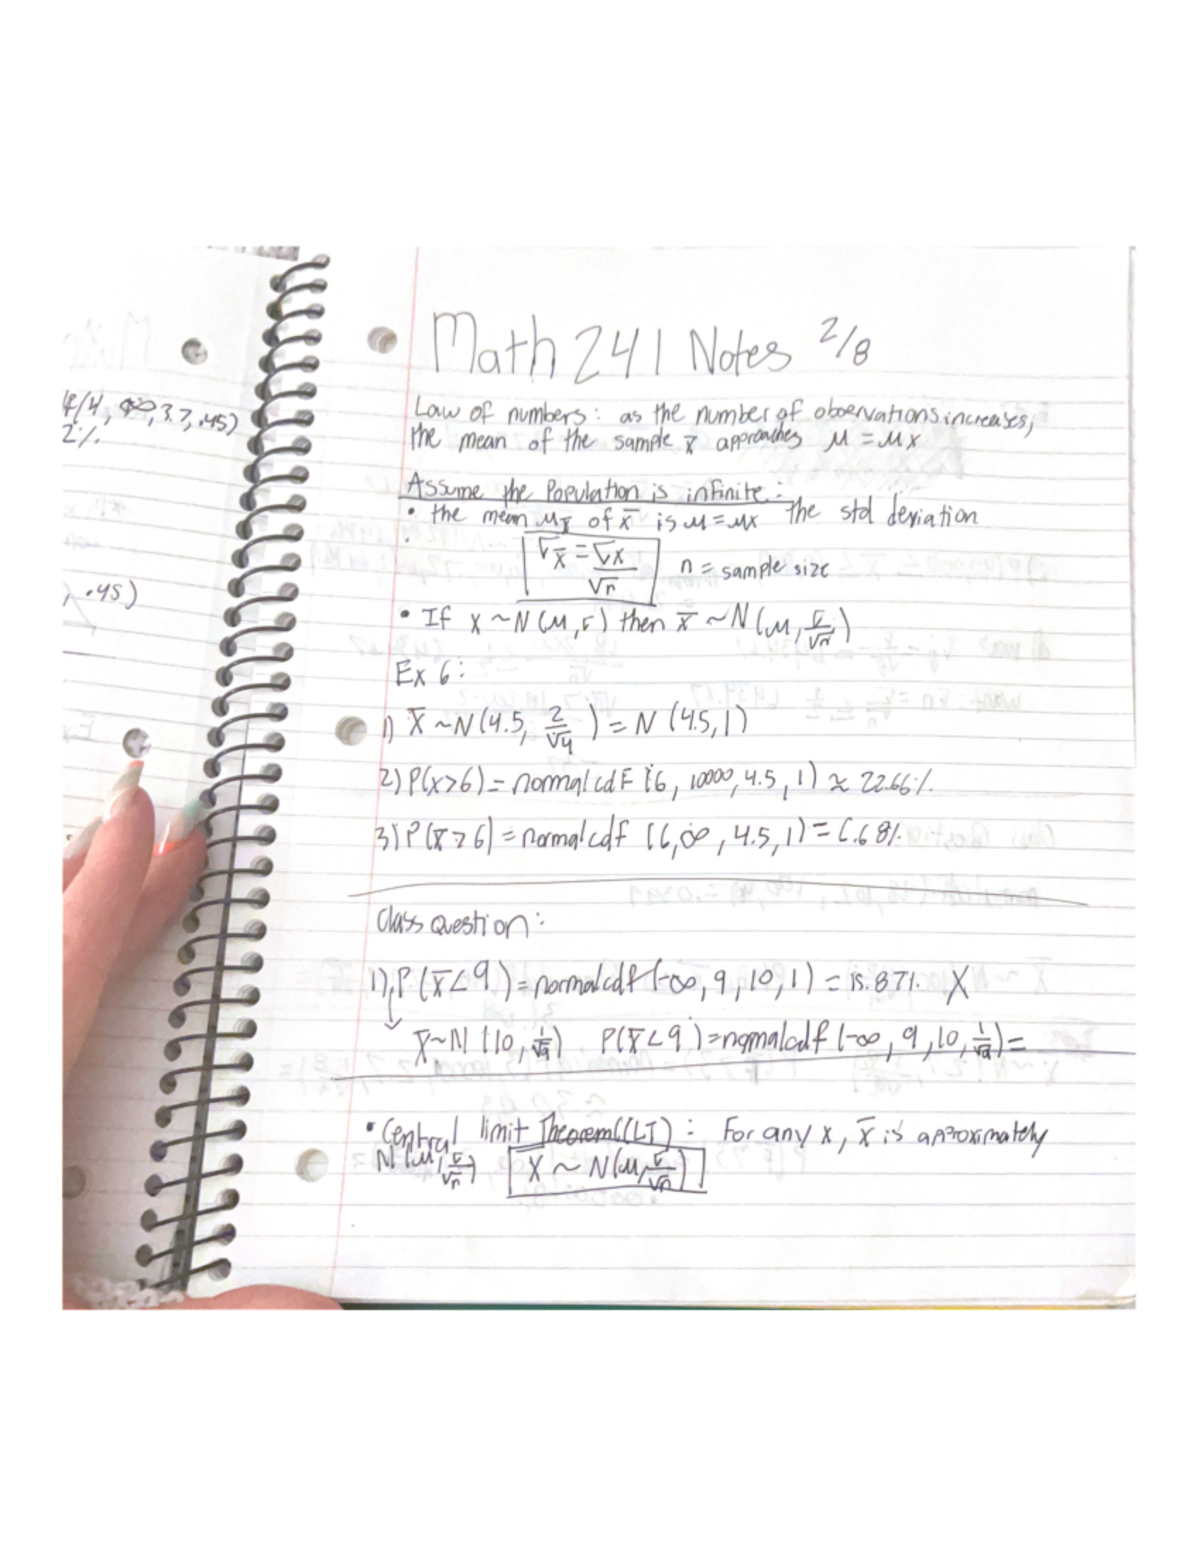 4/4, ∞, 3.7, .45)
2%
, .45)
Math 241 Notes 2/8
Law of numbers: as the number of observations increases,
the mean of the sample x̄ approaches μ = μx
Assume the Population is infinite:
• the mean μx̄ of x̄ is μ = μx the std deviation
σx̄ = σx/√n n = sample size
• If x ~ N(μ, σ) then x̄ ~ N(μ, σ/√n)
Ex 6:
1) x̄ ~ N(4.5, 2/√4) = N(4.5, 1)
2) P(x > 6) = normalcdf (6, 10000, 4.5, 1) ≈ 22.66%
3) P(x̄ > 6) = normalcdf (6, ∞, 4.5, 1) = 6.68%
Class Question:
1) P(x̄ < 9) = normalcdf (-∞, 9, 10, 1) = 15.87% X
x̄ ~ N(10, 1/√9) P(x̄ < 9) = normalcdf (-∞, 9, 10, 1/√9) =
• Central limit Theorem (CLT): For any x, x̄ is approximately
N(μ, σ/√n) x̄ ~ N(μ, σ/√n)